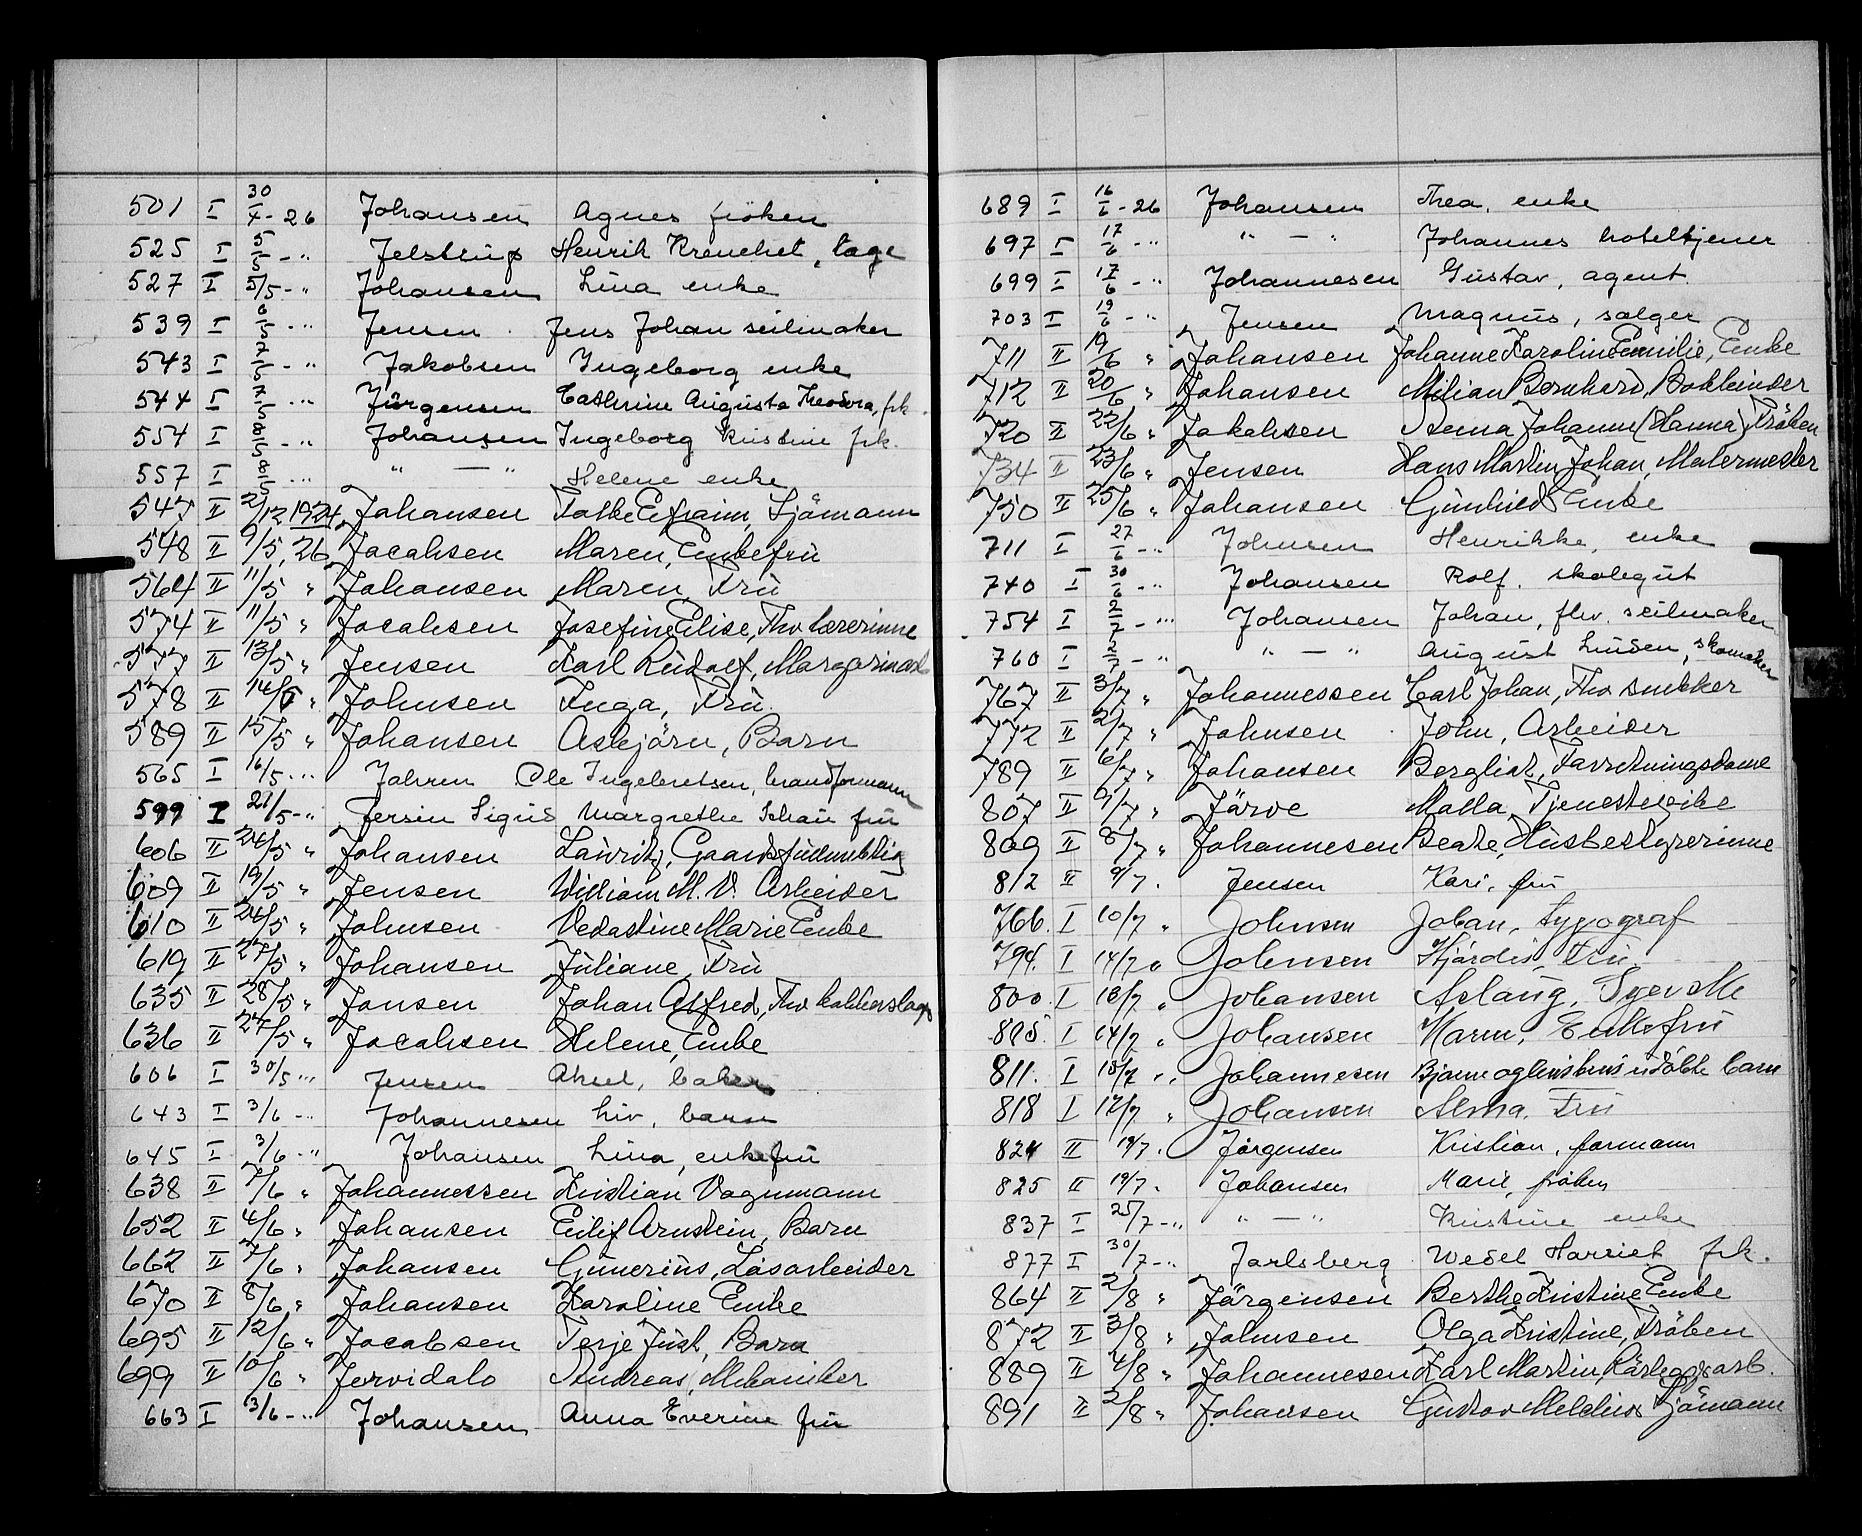 501 I 30/4-26 Johansen Agnes fröken
525 I 5/5-" Jelstrup Henrik Krenchel, læge
527 I 5/5-" Johansen Lina enke
539 I 6/5-" Jensen Jens Johan seilmaker
543 I 7/5-" Jakobsen Ingeborg enke
544 I 7/5 " Jürgensen Cathrine Augusta Theodora, frk.
554 I 8/5-" Johansen Ingeborg Kristine frk.
557 I 8/5 " " — " Helene enke
547 II 2/12 1924 Johansen Falke Efraim, Sjömann
548 II 9/5, 26 Jacobsen Maren, Enkefru
564 II 11/5 " Johansen Maren, Fru
574 II 11/5 " Jacobsen Josefine Elise, Fhv lærerinne
577 II 13/5 " Jensen Karl Rudolf,
578 II 14/5 " Johnsen Inga, Fru.
589 II 15/5 " Johansen Asbjörn, Barn
565 I 16/5 " Jahren Ole Ingebretsen, brandformann
599 I 21/5-" Jersin Sigrid Margrethe Schau fru
606 II 26/5 " Johansen Lauritz, Gaardsfuldmektig
609 II 19/5 " Jensen William M. V. Arbeider
610 II 26/5 " Johnsen Vedastine Marie Enke
619 II 27/5 " Johansen Juliane, Fru
635 II 28/5 " Jansen Johan Alfred, Fhv kobberslager
636 II 27/5 " Jacobsen Helene, Enke
606 I 30/5 " Jensen Aksel, baker
643 I 3/6 -" Johannesen Liv, barn
645 I 3/6 -" Johansen Lina, enkefru
638 II 2/6 " Johannessen Kristian Vognmann
652 II 4/6 " Johansen Eilif Arnstein, Barn
662 II 7/6 " Johansen Gunerius, Løsarbeider
670 II 8/6 " Johansen Karoline Enke
695 II 12/6 " Jacobsen Terje Juul, Barn
699 II 10/6 " Jervidalo Andreas, Mekaniker
663 I 13/6-" Johansen Anna Everine fru
689 I 16/6-26 Johansen Thea, enke
697 I 17/6-" " — " Johannes hoteltjener
699 I 17/6-" Johannesen Gustav, agent.
703 I 19/6-" Jensen Magnus, sælger
711 II 19/6 " Johansen Johanne Karoline Emilie, Enke
712 II 20/6 " Johansen Milian Bernhard, Bokbinder
720 II 22/6 " Jakobsen Johanne (Hanna) Fröken
734 II 23/6 " Jensen Hans Martin Johan, Malermester
750 II 25/6 " Johansen Gunhild Enke
711 I 27/6-" Johnsen Henrikke, enke
740 I 30/6-" Johansen Rolf. skolegut
754 I 2/7-" Johansen Johan, fhv. seilmaker
760 I 2/7-" " — " August Linden, skomaker
767 II 3/7 " Johannessen Carl Johan, Fhv snekker
772 II 2/7 " Johnsen John, Arbeider
789 II 6/7 " Johansen Bergliot, Forretningsdame
807 II 9/7 " Järve Malla, Tjenestepike
809 II 8/7 " Johannesen Beate, Husbestyrerinne
812 II 9/7. Jensen Kari, fru
766. I 10/7 " Johnsen Johan, typograf
794. I 14/7 " Johnsen Hjördis, Fru.
800. I 13/7 " Johansen Aslaug,
805. I 14/7 " Johansen Karen, Enkefru
811. I 15/7 " Johannesen Bjarne og udöbte barn
818 I 17/7 " Johansen Alma, Fru
824 II 19/7. Jörgensen Kristian, formann
825 II 19/7. Johansen Marie, fröken
837 I 25/7-" " — " Kristine enke
877 I 30/7-" Jarlsberg Wedel Harriet frk.
864 II 2/8 " Jörgensen Berthe Kristine Enke
872 II 3/8 " Johnsen Olga Kristine, Fröken
889 II 4/8 " Johannesen Karl Martin Rörleggerarb.
891 II 2/8 " Johansen Gustav Melchior Sjömann